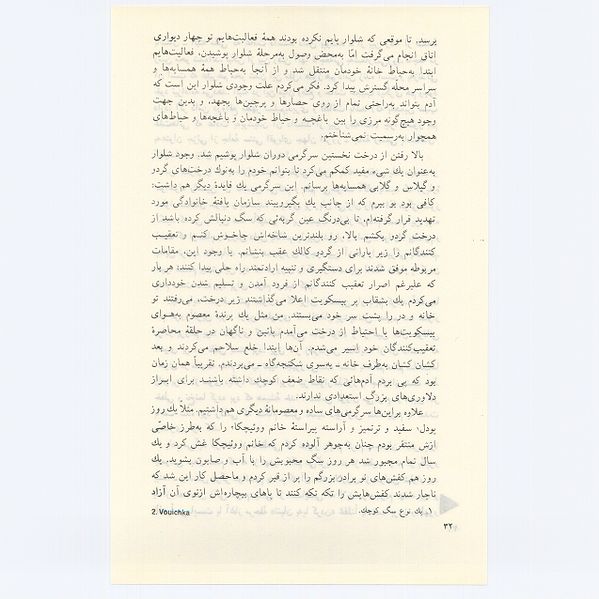 برسد. تا موقعی که شلوار پایم نکرده بودند همهٔ فعالیت‌هایم تو چهار دیواری
اتاق انجام می‌گرفت امّا به‌محض وصول به‌مرحلهٔ شلوار پوشیدن، فعالیت‌هایم
ابتدا به‌حیاط خانهٔ خودمان منتقل شد و از آنجا به‌حیاط همهٔ همسایه‌ها و
سراسر محله گسترش پیدا کرد. فکر می‌کردم علت وجودی شلوار این است که
آدم بتواند به‌راحتی تمام از روی حصارها و پرچین‌ها بجهد، و بدین جهت
وجود هیچ‌گونه مرزی را بین باغچه و حیاط خودمان و باغچه‌ها و حیاط‌های
همجوار به‌رسمیت نمی‌شناختم.
بالا رفتن از درخت نخستین سرگرمی دوران شلوار پوشیم شد. وجود شلوار
به‌عنوان یك شیء مفید کمکم می‌کرد تا بتوانم خودم را به‌نوك درخت‌های گردو
و گیلاس و گلابی همسایه‌ها برسانم. این سرگرمی یك فایدهٔ دیگر هم داشت:
کافی بود بو ببرم که از جانب یك بگیروببند سازمان یافتهٔ خانوادگی مورد
تهدید قرار گرفته‌ام، تا بی‌درنگ عین گربه‌ئی که سگ دنبالش کرده باشد از
درخت گردو بکشم بالا، رو بلندترین شاخه‌اش جاخوش کنم و تعقیب
کنندگانم را زیر بارانی از گردو کالك عقب بنشانم. با وجود این، مقامات
مربوطه موفق شدند برای دستگیری و تنبیه ارادتمند راه حلی پیدا کنند: هر بار
که علیرغم اصرار تعقیب کنندگانم از فرود آمدن و تسلیم شدن خودداری
می‌کردم یك بشقاب پر بیسکویت اعلا می‌گذاشتند زیر درخت، می‌رفتند تو
خانه و در را پشت سر خود می‌بستند. من مثل یك پرندهٔ معصوم به‌هوای
بیسکویت‌ها با احتیاط از درخت می‌آمدم پائین و ناگهان در حلقهٔ محاصرهٔ
تعقیب‌کنندگان خود اسیر می‌شدم. آن‌ها ابتدا خلع سلاحم می‌کردند و بعد
کشان کشان به‌طرف خانه ـ به‌سوی شکنجه‌گاه ـ می‌بردندم. تقریباً همان زمان
بود که پی بردم آدم‌هائی که نقاط ضعف کوچك داشته باشند برای ابراز
دلاوری‌های بزرگ استعدادی ندارند.
علاوه براین‌ها سرگرمی‌های ساده و معصومانهٔ دیگری هم داشتیم. مثلاً یك روز
سفید و ترتمیز و آراسته پیراستهٔ خانم ووئیچکا۲ را که به‌طرز خاصّی
ازش متنفر بودم چنان به‌جوهر آلوده کردم که خانم ووئیچکا غش کرد و یك
سال تمام مجبور شد هر روز سگ محبوبش را با آب و صابون بشوید. یك
روز هم کفش‌های نو برادر بزرگم را پر از قیر کردم و ماحصل کار این شد که
ناچار شدند کفش‌هایش را تکه تکه کنند تا پاهای بیچاره‌اش ازتوی آن آزاد
۱. یك نوع سگ کوچك.
2. Vouichka
۳۲